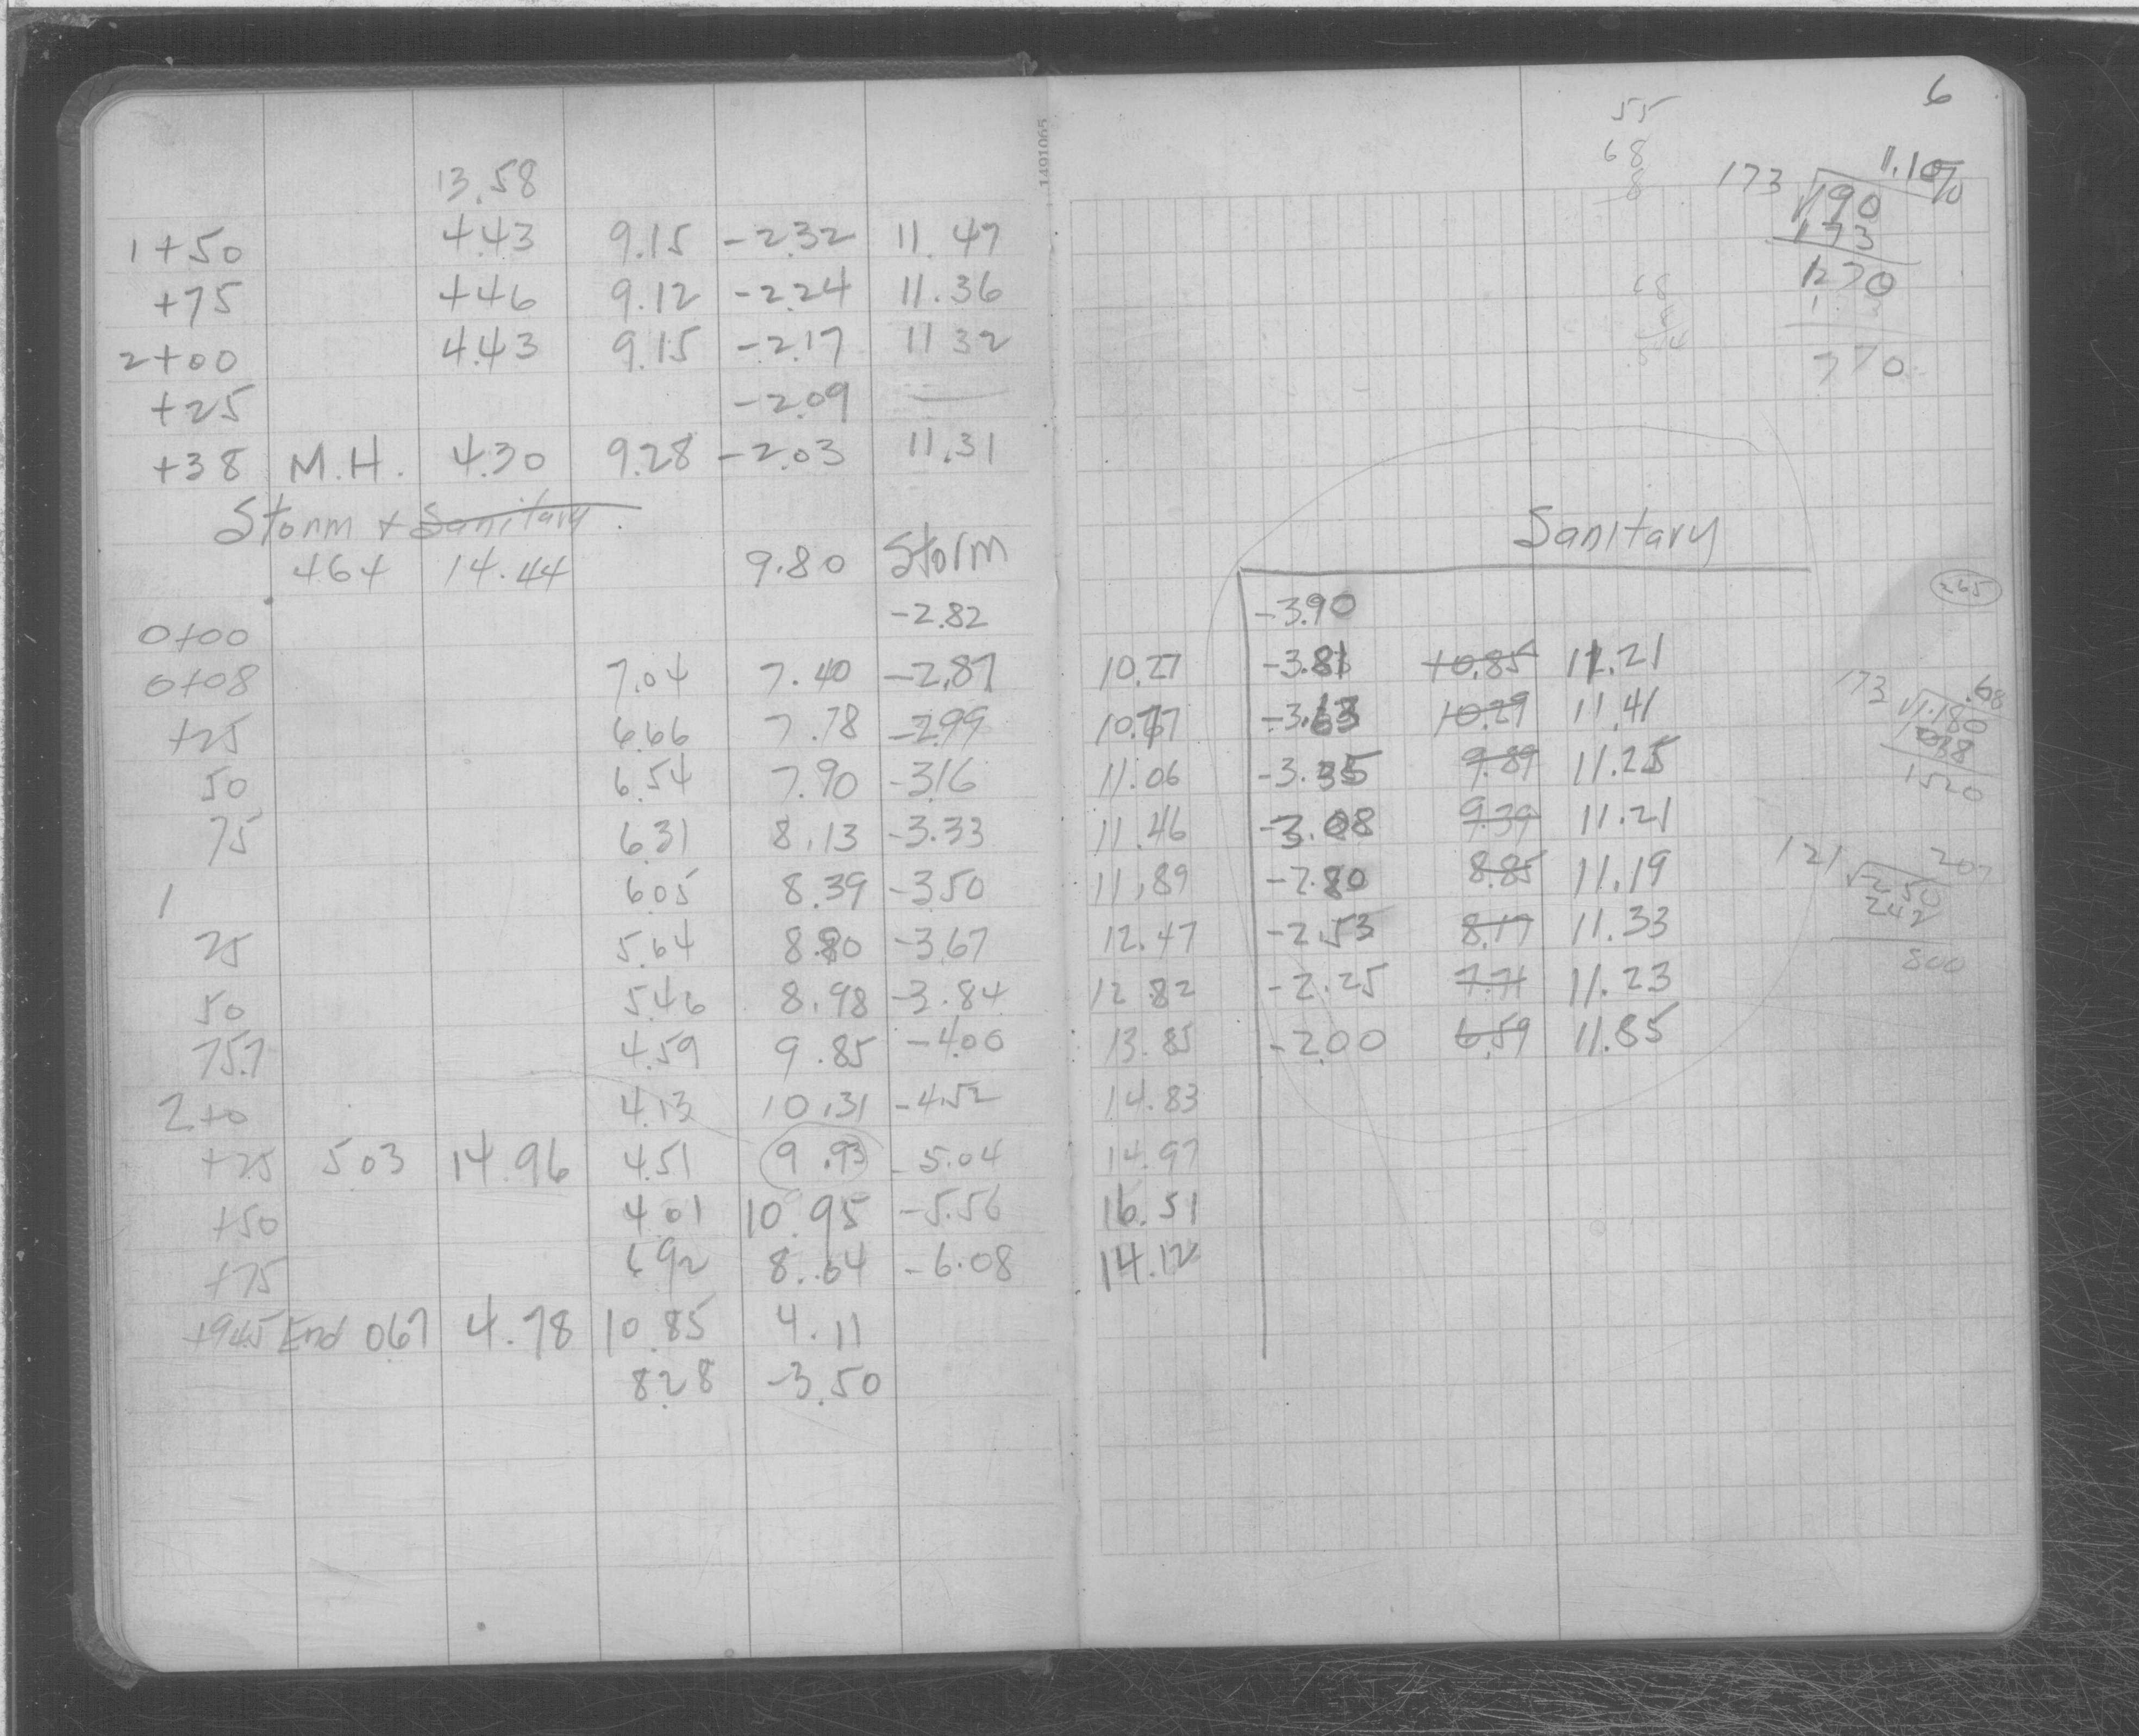 6
13.58
1+50 4.43 9.15 -2.32 11.47
+75 4.46 9.12 -2.24 11.36
2+00 4.43 9.15 -2.17 11 32
+25 -2.09 —
+38 M.H. 4.30 9.28 -2.03 11.31
Storm + Sanitary.
4.64 14.44 9.80 Storm
0+00 -2.82
0+08 7.04 7.40 -2.87
+25 6.66 7.78 -2.99
50 6.54 7.90 -3.16
75 6.31 8.13 -3.33
1 6.05 8.39 -3.50
25 5.64 8.80 -3.67
50 5.46 8.98 -3.84
75.7 4.59 9.85 -4.00
2+0 4.13 10.31 -4.52
+25 5.03 14.96 4.51 9.93 -5.04
+50 4.01 10.95 -5.56
+75 6.92 8.64 -6.08
+94.5 End 0.67 4.78 10.85 4.11
8.28 -3.50
1491065
55
68
8
173 190 1.10%
173
170
770
68
Sanitary
-3.90
10.27 -3.81 10.85 11.21
10.77 -3.63 10.29 11.41
11.06 -3.35 9.89 11.25
11.46 -3.08 9.39 11.21
11.89 -2.80 8.85 11.19
12.47 -2.53 8.17 11.33
12.82 -2.25 7.71 11.23
13.85 -2.00 6.59 11.85
14.83
14.97
16.51
14.12
265
173 1.180 .68
1038
1520
121 2.50 207
242
800